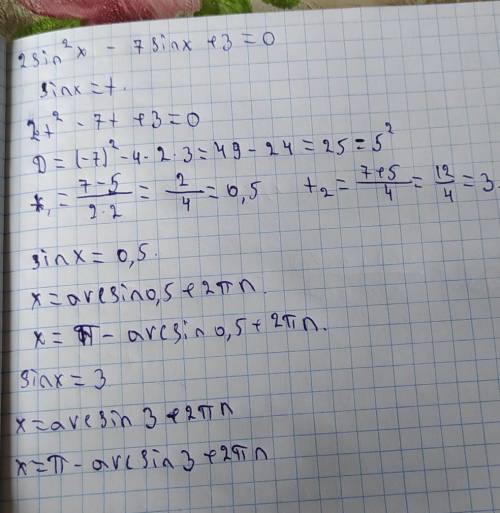 2sin²x - 7sinx + 3 = 0
sinx = t.
2t² - 7t + 3 = 0
D = (-7)² - 4 - 2 · 3 = 49 - 24 = 25 = 5²
t₁ = (7-5)/(2·2) = 2/4 = 0,5 t₂ = (7+5)/4 = 12/4 = 3
sinx = 0,5.
x = arcsin0,5 + 2πn.
x = π - arcsin0,5 + 2πn.
sinx = 3
x = arcsin 3 + 2πn
x = π - arcsin3 + 2πn